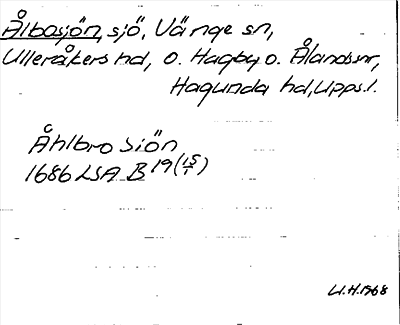 Ålbosjön, sjö, Vänge sn,
Ulleråkers hd, o. Hagby o. Ålands snr,
Hagunda hd, Upps.l.
Åhlbro Siön
1686 LSA B 19 (15/1)
U.H. 1968